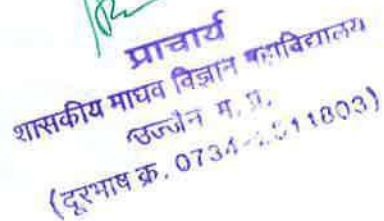 प्राचार्य
शासकीय माधव विज्ञान महाविद्यालय
उज्जैन म. प्र.
(दूरभाष क्र. 0734-2511803)